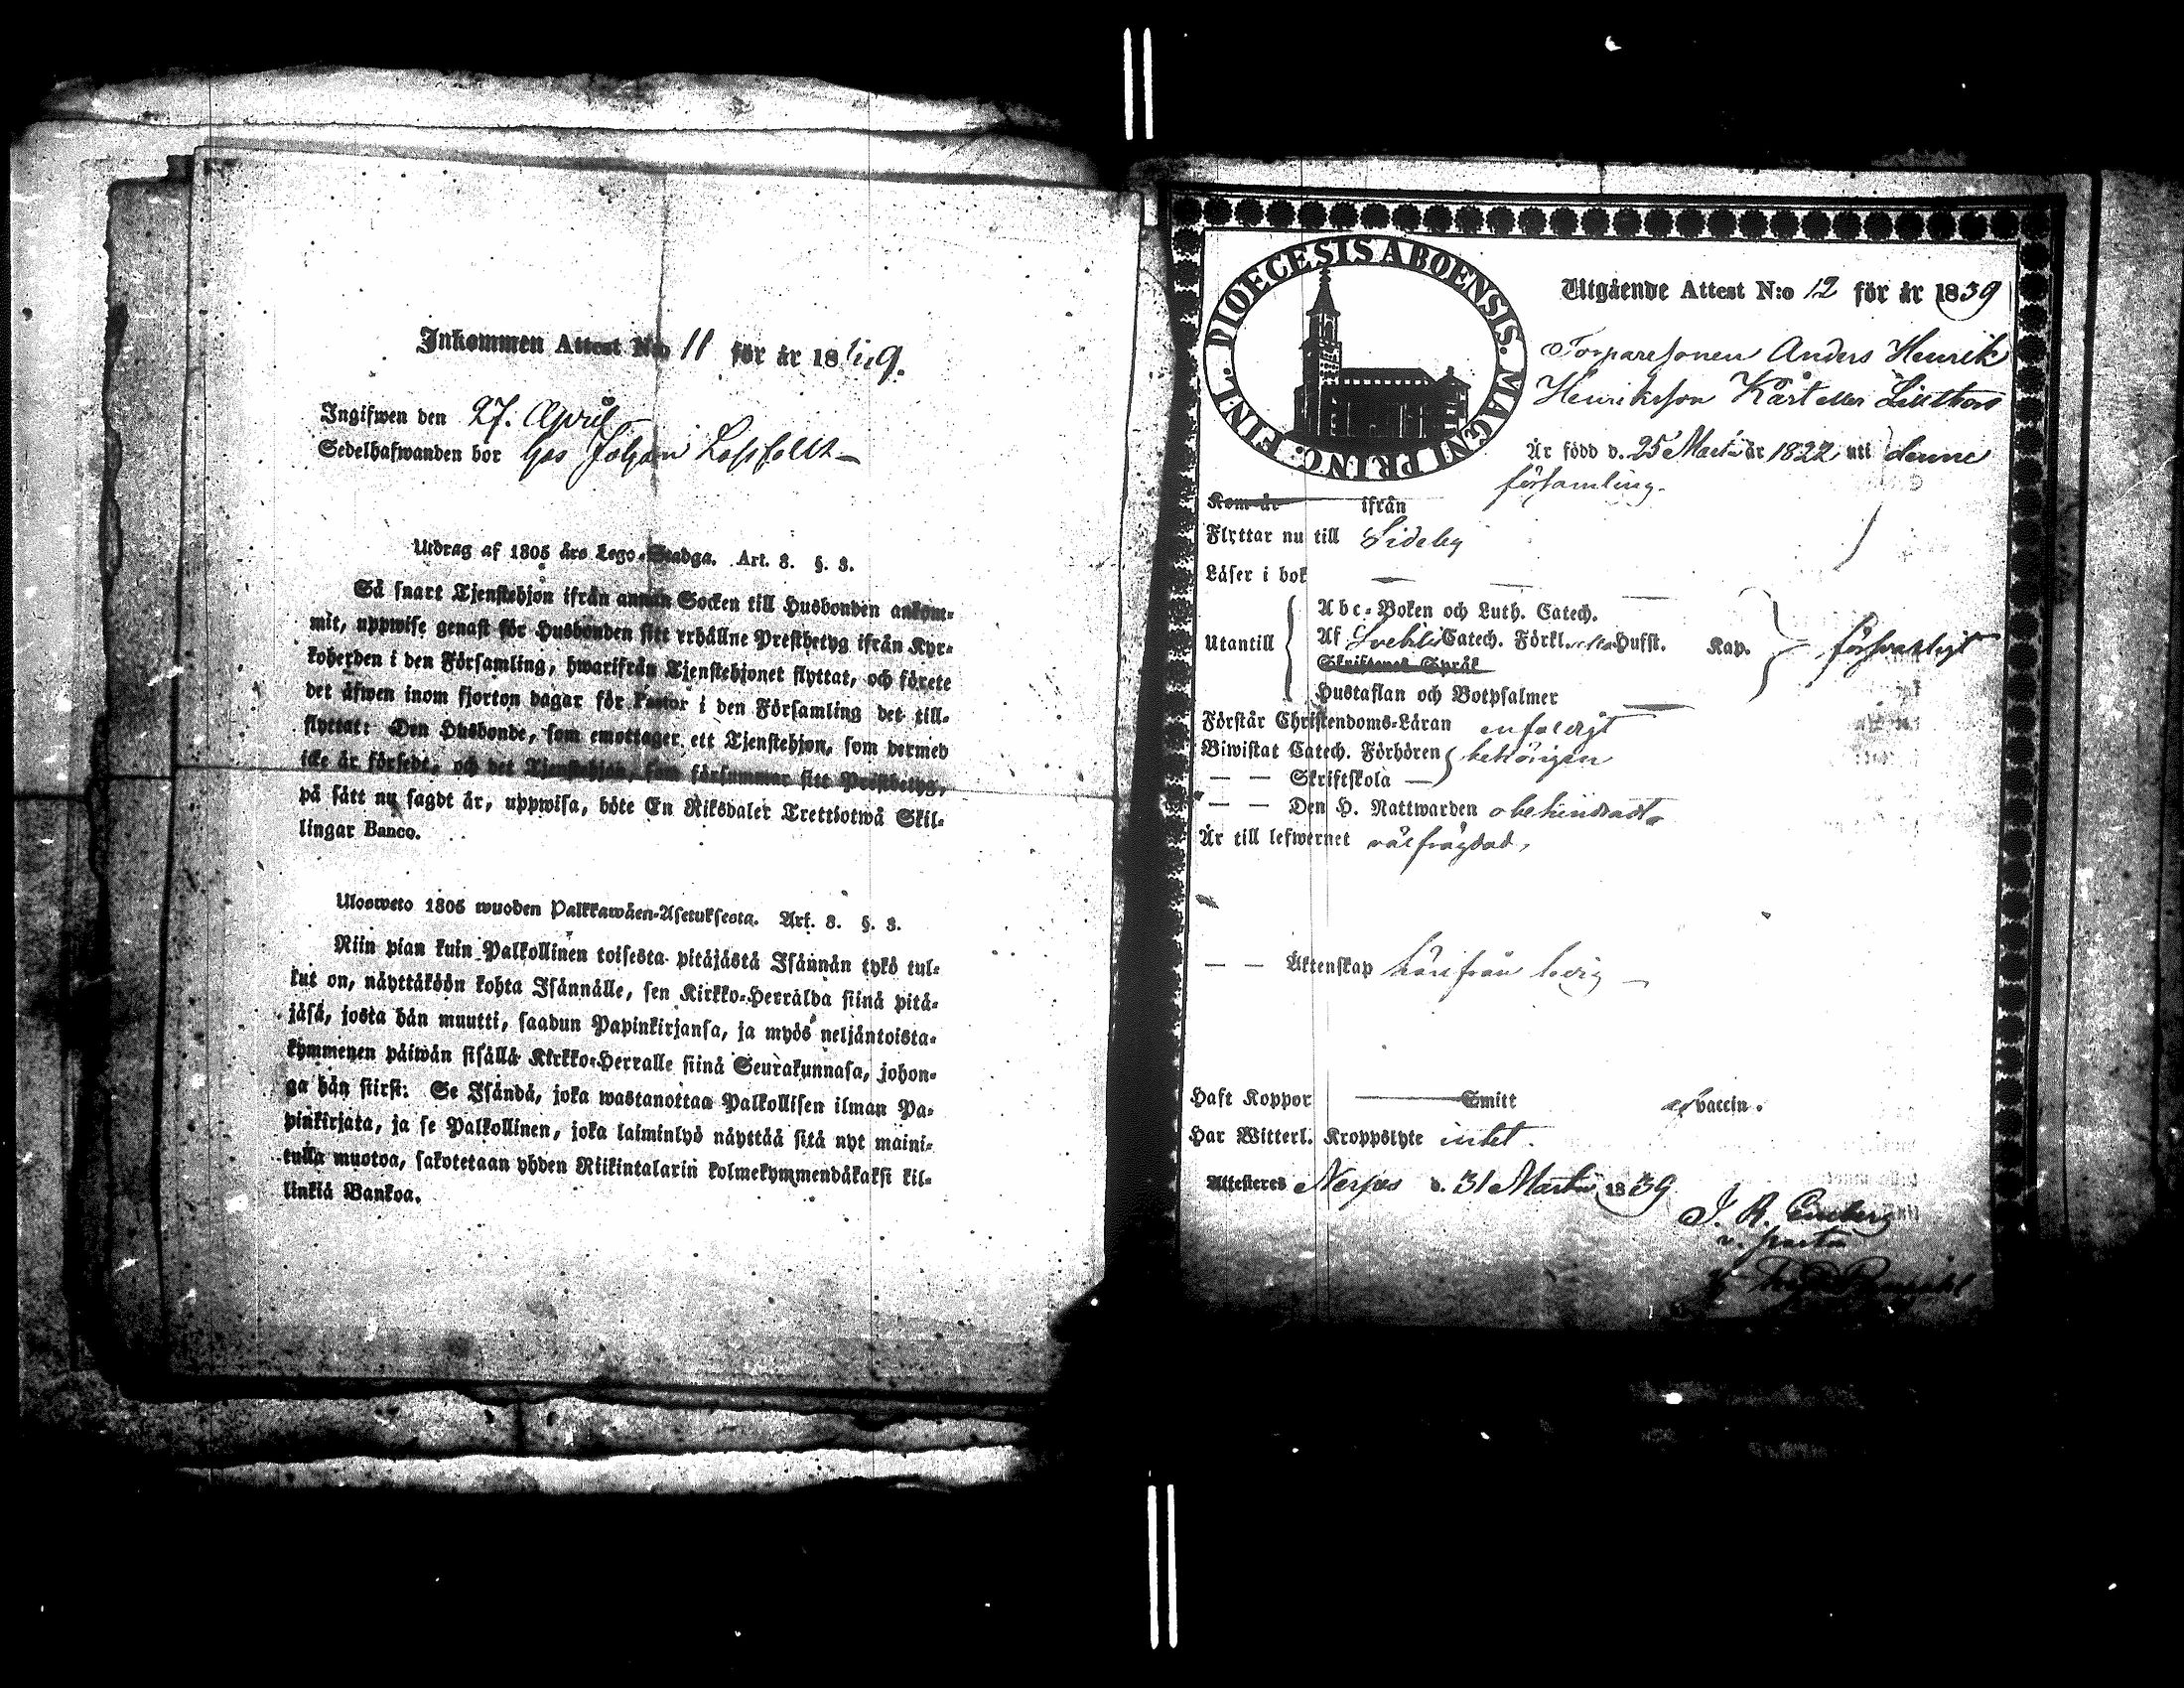 Inkommen Attest N:o 11 för år 18
Ingifwen den 27. April
Sedelhafwanden bor hos Johan
Utdrag af 1805 års Lego-Stadga. Art. 8. §. 3.
Så snart Tjenstehjon ifrån annan Socken till Husbonden ankom-
mit, uppwise genast för Husbonden sitt erhållne Prestbetyg ifrån Kyr-
koherden i den Församling, hwarifrån Tjenstehjonet flyttat, och förete
det äfwen inom fjorton dagar för Pastor i den Församling det till-
flyttat: Den Husbonde, som emottager ett Tjenstehjon, som dermed
icke är försedt, och det Tjenstehjon, som försummar sitt Prestbetyg,
på sätt nu sagdt är, uppwisa, böte En Riksdaler Trettiotwå Skil-
lingar Banco.
Ulosweto 1805 wuoden Palkkawäen-Asetuksesta. Art. 8. §. 3.
Niin pian kuin Palkollinen toisesta pitäjästä Isännän tykö tul-
lut on, näyttäköön kohta Isännälle, sen Kirkko-Herralda siinä pitä-
jäsä, josta hän muutti, saadun Papinkirjansa, ja myös neljäntoista-
kymmenen päiwän sisällä Kirkko-Herralle siinä Seurakunnasa, johon-
ga hän siirsi: Se Isändä, joka wastanottaa Palkollisen ilman Pa-
pinkirjata, ja se Palkollinen, joka laiminlyö näyttää sitä nyt maini-
tulla muotoa, sakotetaan yhden Riikintalarin kolmekymmendäkaksi kil-
linkiä Bankoa.
DIOECESIS ABOENSIS. MAGNI PRINC. FINL.
Utgående Attest N:o 12 för år 1839
Torparesonen Anders Henrik
Henriksson Kårt eller
Är född d. 25 Martii år 1822 uti denne
församling.
Kom år ifrån
Flyttar nu till Sideby
Läser i bok
Abc-Boken och Luth. Catech.
Utantill Af Svebilii Catech. Förkl. Hufst. Kap. försvarligt
Skriftenes Språk
Hustaflan och Botpsalmer
Förstår Christendoms-Läran enfaldigt
Biwistat Catech. Förhören behörigen
— — Skriftskola —
— — Den H. Nattwarden obehindradt
Är till lefwernet välfrägdad,
— — Äktenskap härifrån ledig
Haft Koppor Smitt af vaccin.
Har Witterl. Kroppslyte intet.
Attesteres Nerpes d. 31 Martii 1839
J. R.